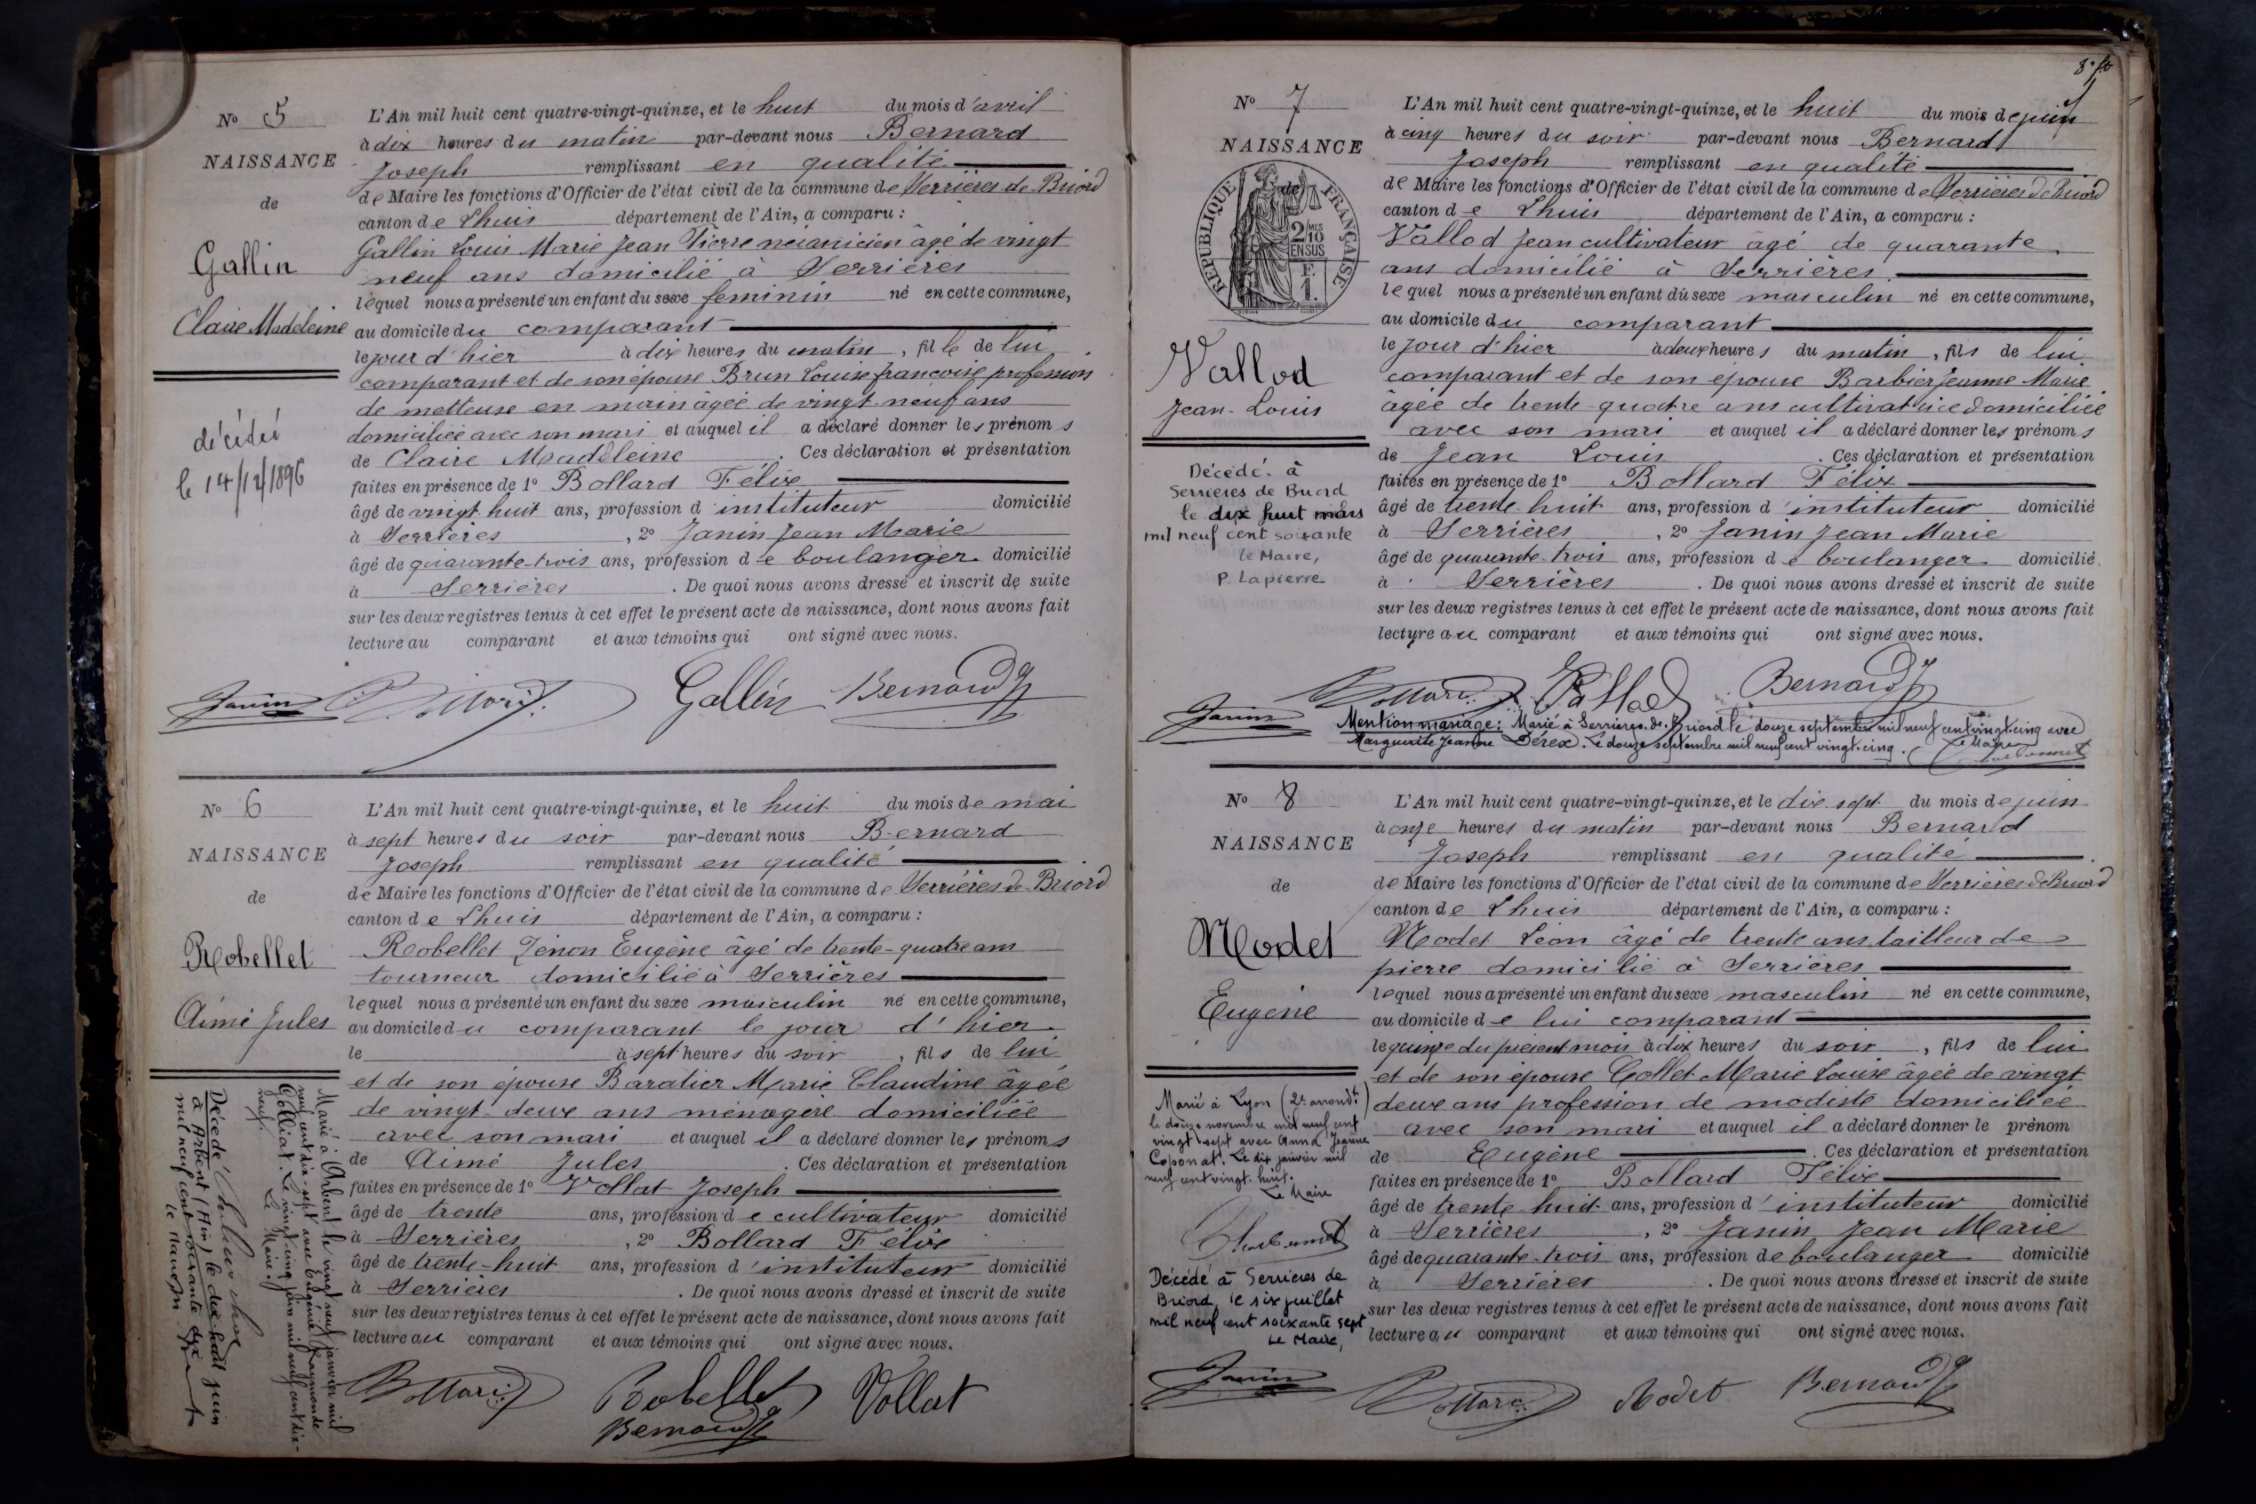 N° 5
NAISSANCE
de
Gallin
Claire Madeleine
décédée
le 14/12/1896
L'An mil huit cent quatre-vingt-quinze, et le huit du mois d'avril
à dix heures du matin par-devant nous Bernard
Joseph remplissant en qualité
de Maire les fonctions d'Officier de l'état civil de la commune de Serrières de Briord
canton de Lhuis département de l'Ain, a comparu :
Gallin Louis Marie Jean Pierre mécanicien âgé de vingt
neuf ans domicilié à Serrières
lequel nous a présenté un enfant du sexe feminin né en cette commune,
au domicile du comparant
le jour d'hier à dix heures du matin, fille de lui
comparant et de son épouse Brun Louise françoise profession
de metteuse en main âgée de vingt neuf ans
domiciliée avec son mari et auquel il a déclaré donner les prénoms
de Claire Madeleine. Ces déclaration et présentation
faites en présence de 1° Bollard Félix
âgé de vingt huit ans, profession d'instituteur domicilié
à Serrières, 2° Janin Jean Marie
âgé de quarante-trois ans, profession de boulanger domicilié
à Serrières. De quoi nous avons dressé et inscrit de suite
sur les deux registres tenus à cet effet le présent acte de naissance, dont nous avons fait
lecture au comparant et aux témoins qui ont signé avec nous.
Janin Bollard Gallin Bernard J
N° 6
NAISSANCE
de
Robellet
Aimé Jules
Marié à Arbent le vingt neuf janvier mil
neuf cent dix-sept avec Eugénie Raymonde
Colliat. Le vingt cinq juin mil neuf cent dix-
neuf. Le Maire :
Décédé
à Arbent (Ain) le dix huit juin
mil neuf cent soixante dix
le Maire
L'An mil huit cent quatre-vingt-quinze, et le huit du mois de mai
à sept heures du soir par-devant nous Bernard
Joseph remplissant en qualité
de Maire les fonctions d'Officier de l'état civil de la commune de Serrières de Briord
canton de Lhuis département de l'Ain, a comparu :
Robellet Zénon Eugène âgé de trente-quatre ans
tourneur domicilié à Serrières
lequel nous a présenté un enfant du sexe masculin né en cette commune,
au domicile du comparant le jour d'hier
le à sept heures du soir, fils de lui
et de son épouse Baratier Marie Claudine âgée
de vingt-deux ans ménagère domiciliée
avec son mari et auquel il a déclaré donner les prénoms
de Aimé Jules. Ces déclaration et présentation
faites en présence de 1° Vollat Joseph
âgé de trente ans, profession de cultivateur domicilié
à Serrières, 2° Bollard Félix
âgé de trente-huit ans, profession d'instituteur domicilié
à Serrières. De quoi nous avons dressé et inscrit de suite
sur les deux registres tenus à cet effet le présent acte de naissance, dont nous avons fait
lecture au comparant et aux témoins qui ont signé avec nous.
Bollard Robellet Vollat
Bernard J
8e fo
N° 7
NAISSANCE
de
REPUBLIQUE FRANÇAISE
2 10 MES
EN SUS
F.
1.
Vallod
Jean-Louis
Décédé à
Serrieres de Briord
le dix huit mars
mil neuf cent soixante
le Maire,
P. Lapierre
L'An mil huit cent quatre-vingt-quinze, et le huit du mois de juin
à cinq heures du soir par-devant nous Bernard
Joseph remplissant en qualité
de Maire les fonctions d'Officier de l'état civil de la commune de Serrières de Briord
canton de Lhuis département de l'Ain, a comparu :
Vallod Jean cultivateur âgé de quarante
ans domicilié à Serrières
lequel nous a présenté un enfant du sexe masculin né en cette commune,
au domicile du comparant
le jour d'hier à deux heures du matin, fils de lui
comparant et de son épouse Barbier Jeanne Marie
âgée de trente quatre ans cultivatrice domiciliée
avec son mari et auquel il a déclaré donner les prénoms
de Jean Louis. Ces déclaration et présentation
faites en présence de 1° Bollard Félix
âgé de trente huit ans, profession d'instituteur domicilié
à Serrières, 2° Janin Jean Marie
âgé de quarante-trois ans, profession de boulanger domicilié
à Serrières. De quoi nous avons dressé et inscrit de suite
sur les deux registres tenus à cet effet le présent acte de naissance, dont nous avons fait
lecture au comparant et aux témoins qui ont signé avec nous.
Janin Bollard Vallod Bernard J
Mention mariage : Marié à Serrieres-de-Briord le douze septembre mil neuf cent vingt-cinq avec
Marguerite Jeanne Dérex. Le douze septembre mil neuf cent vingt-cinq. Le Maire
Charbonnet
N° 8
NAISSANCE
de
Modet
Eugène
Marié à Lyon (2e arrondt)
le douze novembre mil neuf cent
vingt sept avec Anna Jeanne
Coponat. Le dix janvier mil
neuf cent vingt-huit.
Le Maire
Charbonnet
Décédé à Serrieres de
Briord le six juillet
mil neuf cent soixante sept
Le Maire,
L'An mil huit cent quatre-vingt-quinze, et le dix sept du mois de juin
à onze heures du matin par-devant nous Bernard
Joseph remplissant en qualité
de Maire les fonctions d'Officier de l'état civil de la commune de Serrières de Briord
canton de Lhuis département de l'Ain, a comparu :
Modet Léon âgé de trente ans tailleur de
pierre domicilié à Serrières
lequel nous a présenté un enfant du sexe masculin né en cette commune,
au domicile de lui comparant
le quinze du présent mois à dix heures du soir, fils de lui
et de son épouse Collet Marie Louise âgée de vingt
deux ans profession de modiste domiciliée
avec son mari et auquel il a déclaré donner le prénom
de Eugène. Ces déclaration et présentation
faites en présence de 1° Bollard Félix
âgé de trente huit ans, profession d'instituteur domicilié
à Serrières, 2° Janin Jean Marie
âgé de quarante-trois ans, profession de boulanger domicilié
à Serrières. De quoi nous avons dressé et inscrit de suite
sur les deux registres tenus à cet effet le présent acte de naissance, dont nous avons fait
lecture au comparant et aux témoins qui ont signé avec nous.
Janin Bollard Modet Bernard J